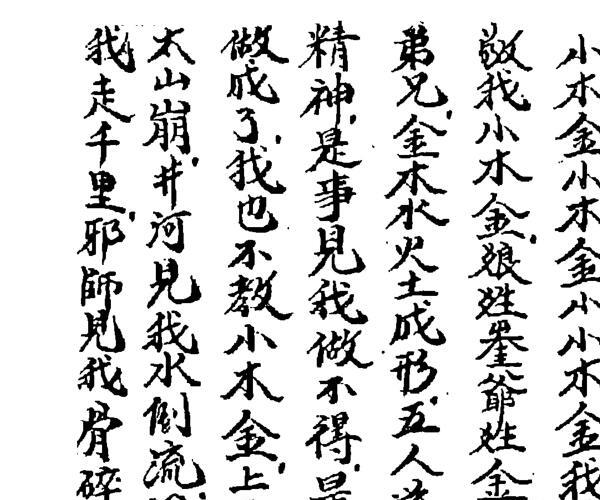 小木金小木金小小木金我
敬我小木金娘姓崟爺姓金
弟兄金木水火土成形五人
精神是事見我做不得
做成了我也不教小木金上
太山崩井河見我水倒流
我走千里邪師見我骨碎